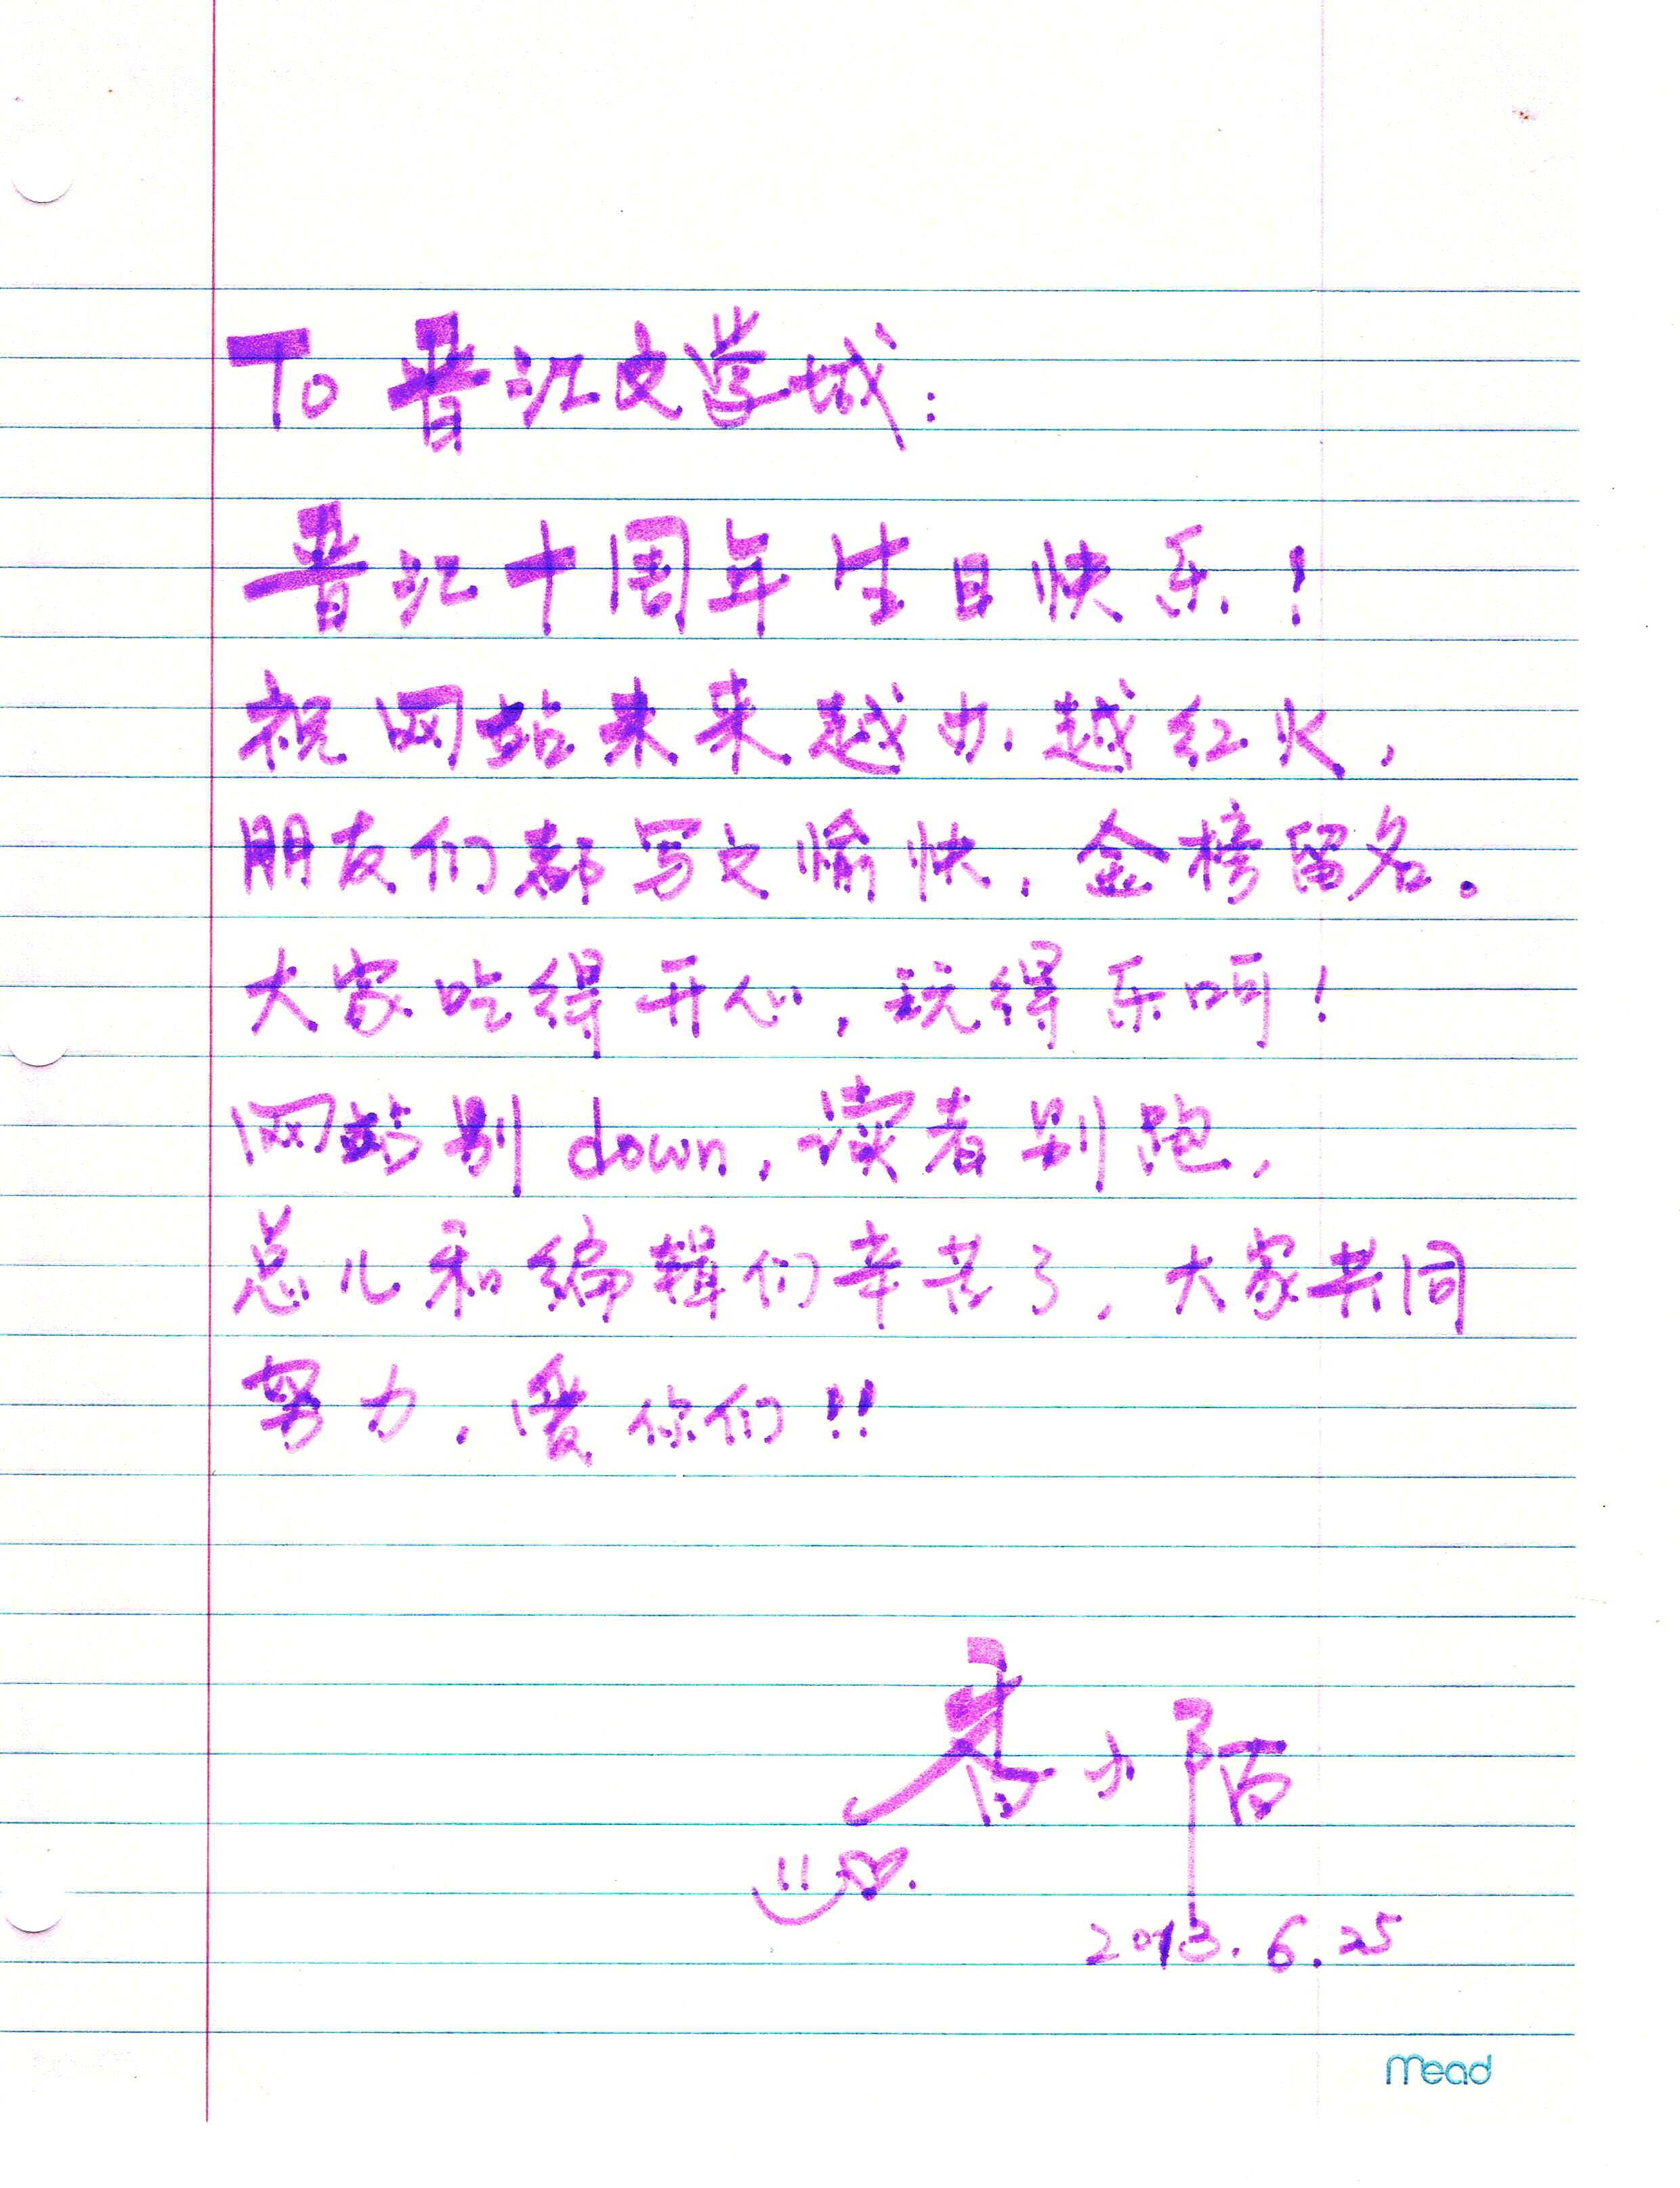 To 晋江文学城：
晋江十周年生日快乐！
祝网站未来越办越红火，
朋友们都写文愉快，金榜留名。
大家吃得开心，玩得乐呵！
网站别down，读者别跑，
总儿和编辑们辛苦了，大家共同
努力，爱你们！！
香小陌
2013.6.25
mead